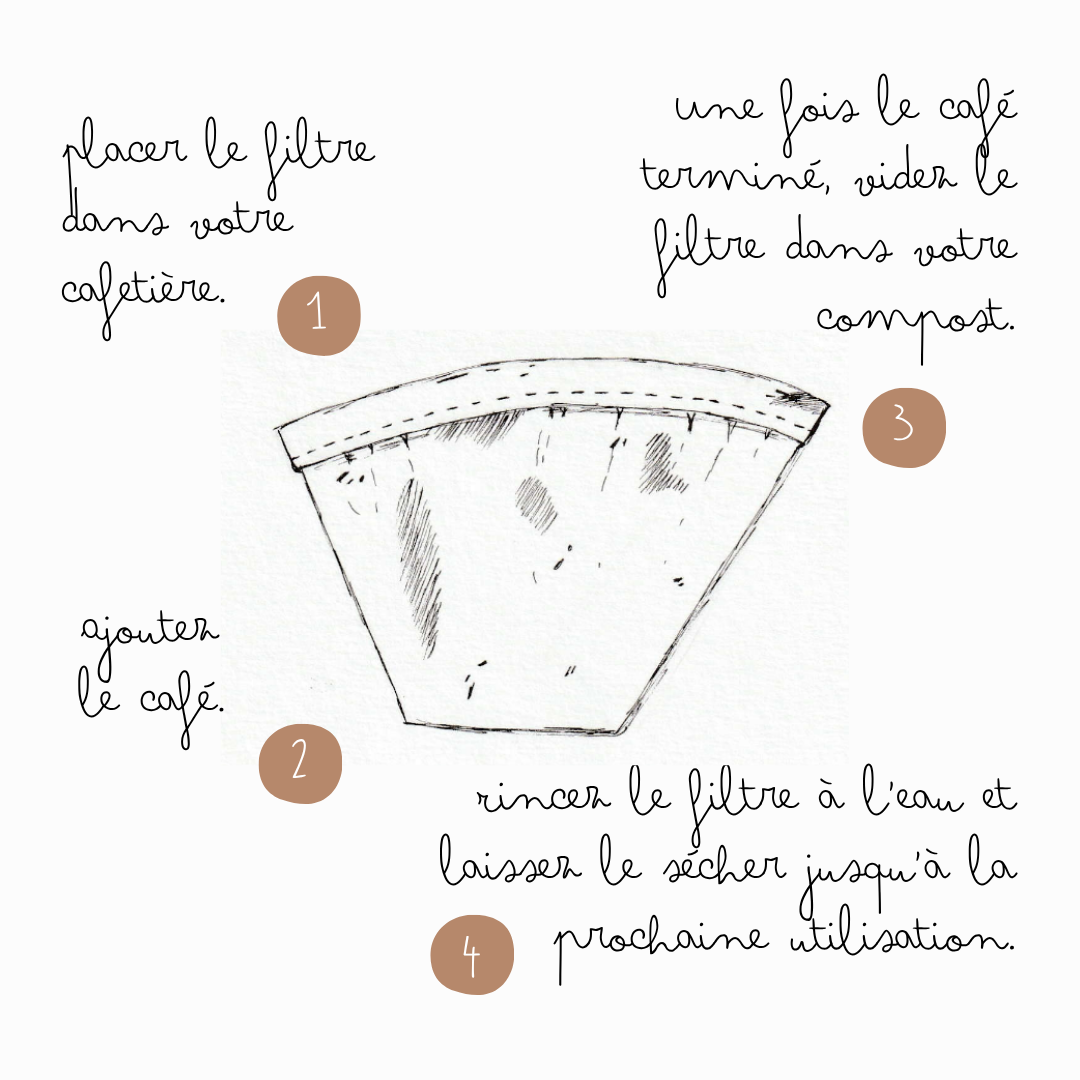 placer le filtre
dans votre
cafetière.
1
ajoutez
le café.
2
une fois le café
terminé, videz le
filtre dans votre
compost.
3
rincez le filtre à l'eau et
laissez le sécher jusqu'à la
prochaine utilisation.
4